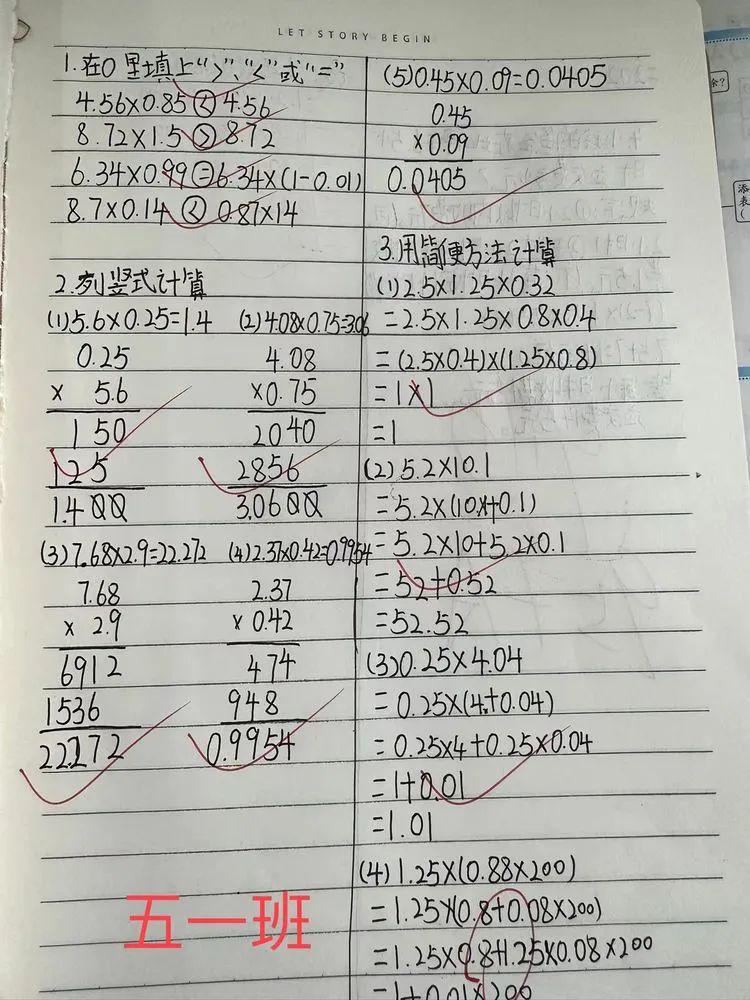 LET STORY BEGIN
1.在O里填上“>”、“<”或“=”
4.56×0.85<4.56
8.72×1.5>8.72
6.34×0.99=6.34×(1-0.01)
8.7×0.14<0.87×14
2.列竖式计算
(1)5.6×0.25=1.4 (2)4.08×0.75=3.06
0.25 4.08
× 5.6 ×0.75
150 2040
125 2856
1.400 3.0600
(3)7.68×2.9=22.272 (4)2.37×0.42=0.9954
7.68 2.37
× 2.9 × 0.42
6912 474
1536 948
22.272 0.9954
五一班
(5)0.45×0.09=0.0405
0.45
× 0.09
0.0405
3.用简便方法计算
(1)2.5×1.25×0.32
=2.5×1.25×0.8×0.4
=(2.5×0.4)×(1.25×0.8)
=1×1
=1
(2)5.2×10.1
=5.2×(10+0.1)
=5.2×10+5.2×0.1
=52+0.52
=52.52
(3)0.25×4.04
=0.25×(4+0.04)
=0.25×4+0.25×0.04
=1+0.01
=1.01
(4)1.25×(0.88×200)
=1.25×(0.8+0.08×200)
=1.25×0.8+1.25×0.08×200
=1+0.01×200